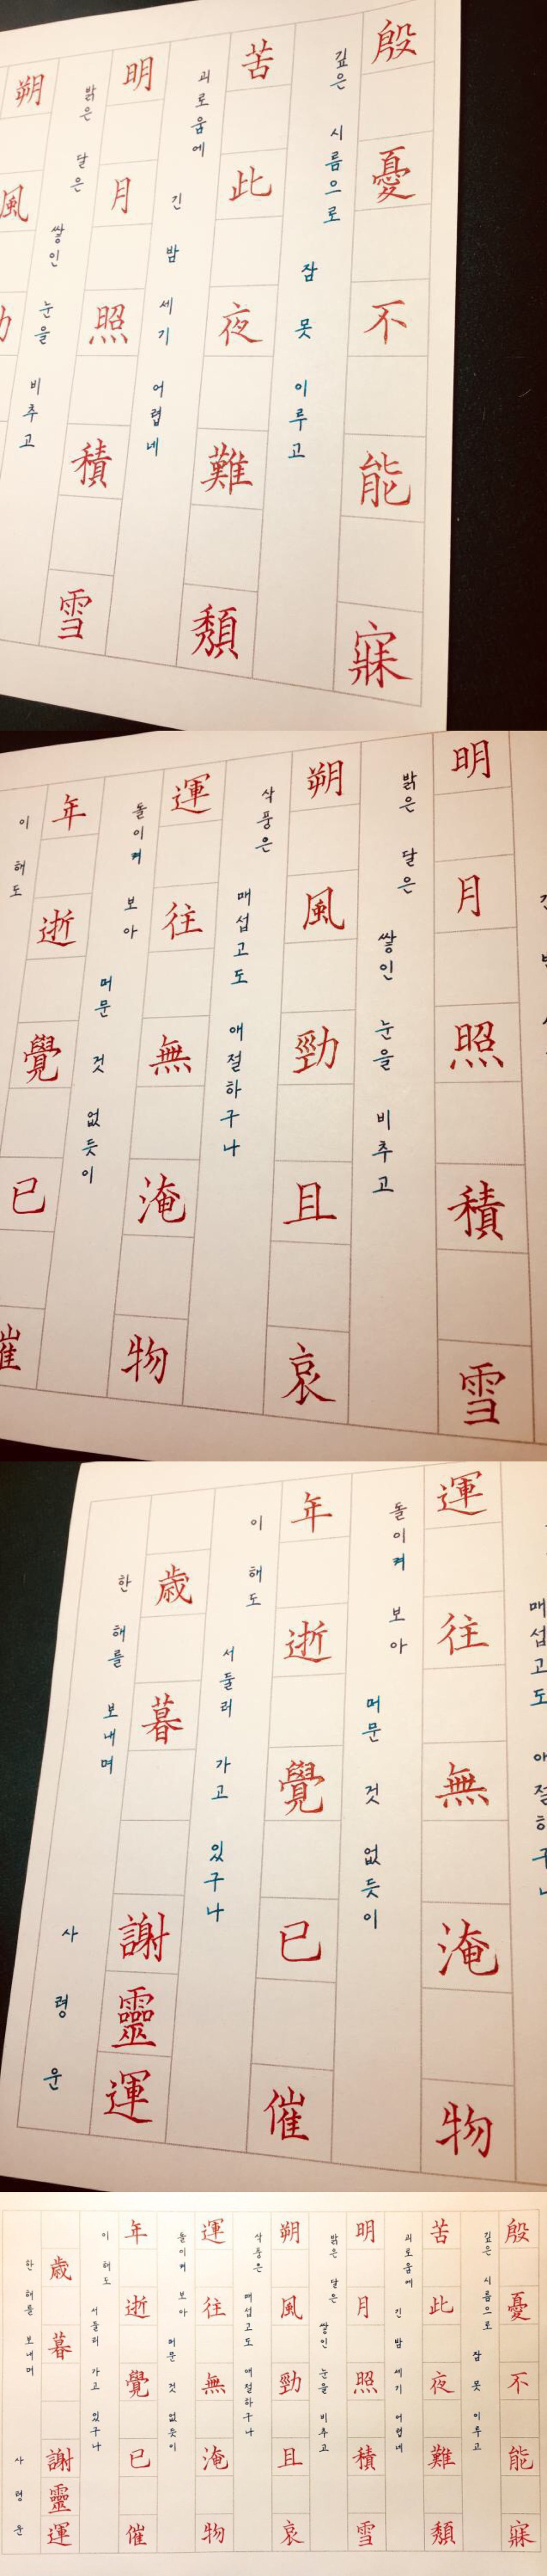 殷憂不能寐
깊은 시름으로 잠 못 이루고
苦此夜難頽
괴로움에 긴 밤 세기 어렵네
明月照積雪
밝은 달은 쌓인 눈을 비추고
朔風
明月照積雪
밝은 달은 쌓인 눈을 비추고
朔風勁且哀
삭풍은 매섭고도 애절하구나
運往無淹物
돌이켜 보아 머문 것 없듯이
年逝覺已催
이 해도
매섭고도
運往無淹物
돌이켜 보아 머문 것 없듯이
年逝覺已催
이 해도 서둘러 가고 있구나
歳暮 謝靈運
한 해를 보내며 사령운
殷憂不能寐
깊은 시름으로 잠 못 이루고
苦此夜難頽
괴로움에 긴 밤 세기 어렵네
明月照積雪
밝은 달은 쌓인 눈을 비추고
朔風勁且哀
삭풍은 매섭고도 애절하구나
運往無淹物
돌이켜 보아 머문 것 없듯이
年逝覺已催
이 해도 서둘러 가고 있구나
歳暮 謝靈運
한 해를 보내며 사령운